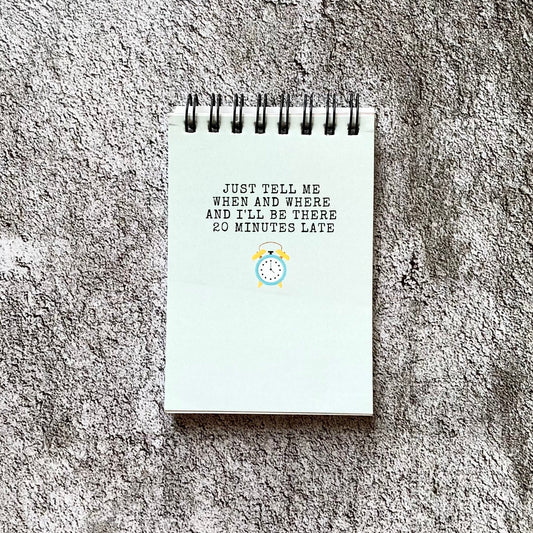 JUST TELL ME
WHEN AND WHERE
AND I'LL BE THERE
20 MINUTES LATE